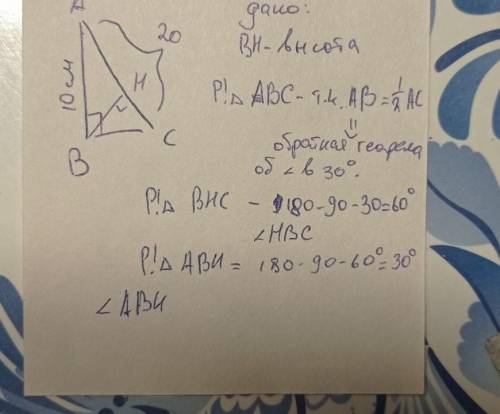 A
20
10см
H
B
C
дано:
BH - высота
Р! △ ABC - т.к. AB = 1/2 AC
обратная теорема
об ∠ в 30°.
Р! △ BHC - 180-90-30=60°
∠HBC
Р! △ ABH = 180-90-60°=30°
∠ABH